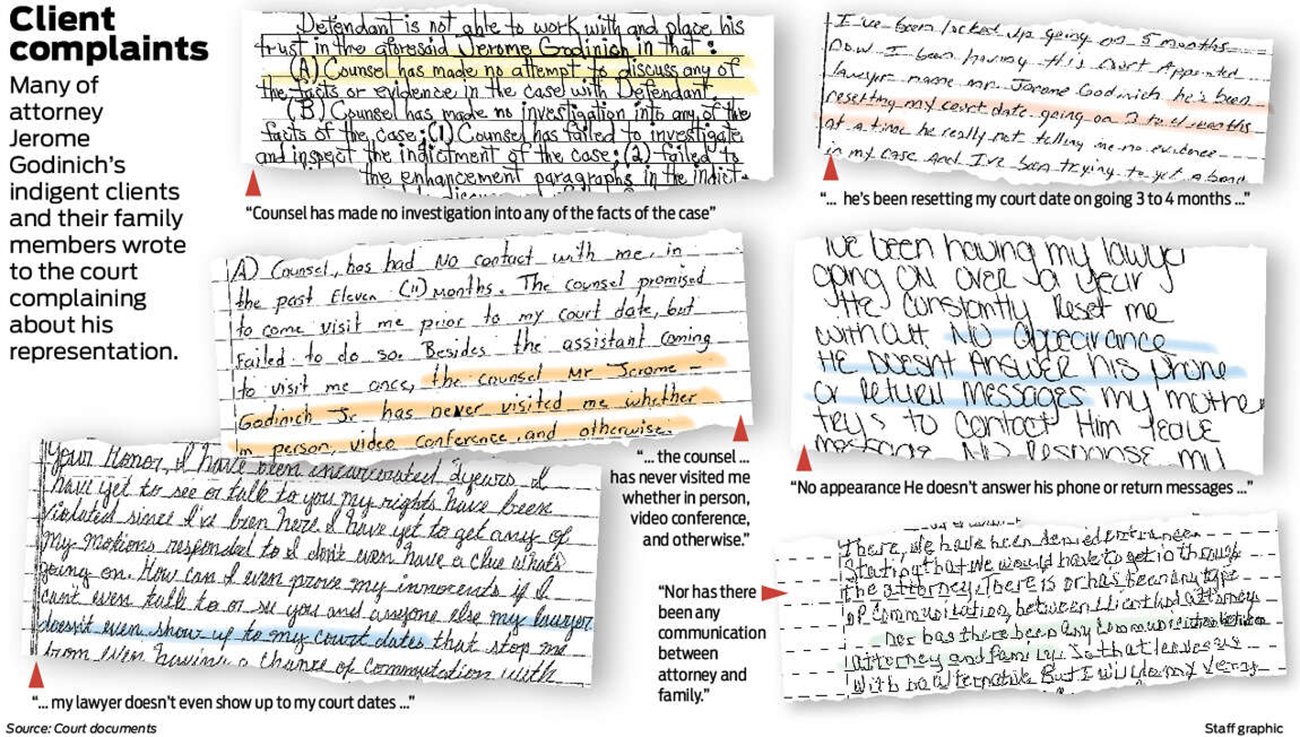 Client
complaints
Many of
attorney
Jerome
Godinich's
indigent clients
and their family
members wrote
to the court
complaining
about his
representation.
Defendant is not able to work with and place his
trust in the aforesaid Jerome Godinich in that:
(A) Counsel has made no attempt to discuss any of
the facts or evidence in the case with Defendant.
(B) Counsel has made no investigation into any of the
facts of the case; (1) Counsel has failed to investigate
and inspect the indictment of the case; (2) failed to
the enhancement paragraphs in the indict-
"Counsel has made no investigation into any of the facts of the case"
I've been locked up going on 5 months
now I been having this Court Appointed
lawyer name mr. Jerome Godinich he's been
resetting my court date going on 3 to 4 months
at a time he really not telling me no evidence
in my case And I've been trying to get a bond
"... he's been resetting my court date on going 3 to 4 months ..."
A) Counsel, has had No contact with me, in
the past Eleven (11) Months. The counsel promised
to come visit me prior to my court date, but
failed to do so. Besides the assistant coming
to visit me once, the counsel Mr Jerome -
Godinich Jr. has never visited me whether
in person, video conference, and otherwise.
"... the counsel ...
has never visited me
whether in person,
video conference,
and otherwise."
I've been having my lawyer
going ON over a year
He constantly Reset me
without NO appearance
HE DOESNT ANSWER his phone
or Return MESSAGES my mother
trys to contact Him leave
message NO Response my
"No appearance He doesn't answer his phone or return messages ..."
Your Honor, I have been incarcerated 2 years I
have yet to see or talk to you my rights have been
violated since I've been here I have yet to get any of
My Motions responded to I don't even have a clue what's
going on. How can I even prove my innocents if I
cant even talk to or see you and anyone else my lawyer
doesn't even show up to my court dates that stop me
from even having a chance of commutation with
"... my lawyer doesn't even show up to my court dates ..."
"Nor has there
been any
communication
between
attorney and
family."
There, We have been denied entrance.
Stating that We would have to get in through
the attorney. There is or has been any type
of Communication, between Client and attorney
Nor has there been any Communication between
attorney and family. So that leaves us
With no alternative But I will do my very
Source: Court documents
Staff graphic